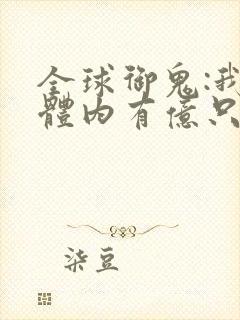 全球御鬼:我
體内有億只
柒豆